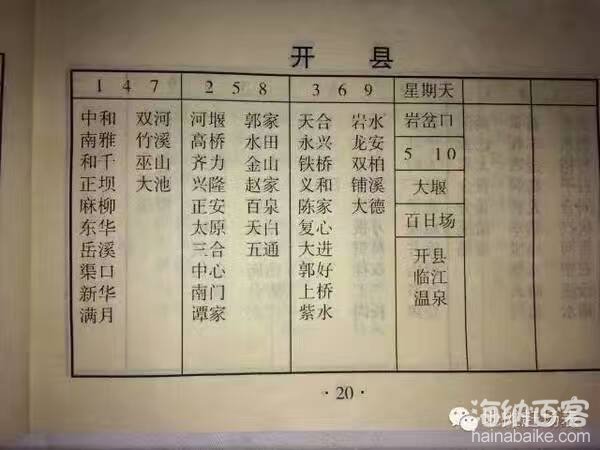 开 县
1 4 7 2 5 8 3 6 9 星期天
中和 双河 河堰 郭家 天合 岩水 岩岔口
南雅 竹溪 高桥 水田 永兴 龙安
和千 巫山 齐力 金山 铁桥 双柏 5 10
正坝 大池 兴隆 赵家 义和 铺溪 大堰
麻柳 正安 百泉 陈家 大德
东华 太原 天白 复心 百日场
岳溪 三合 五通 大进 开县
渠口 中心 郭好 临江
新华 南门 上桥 温泉
满月 谭家 紫水
·20·
海纳百客
hainabaike.com